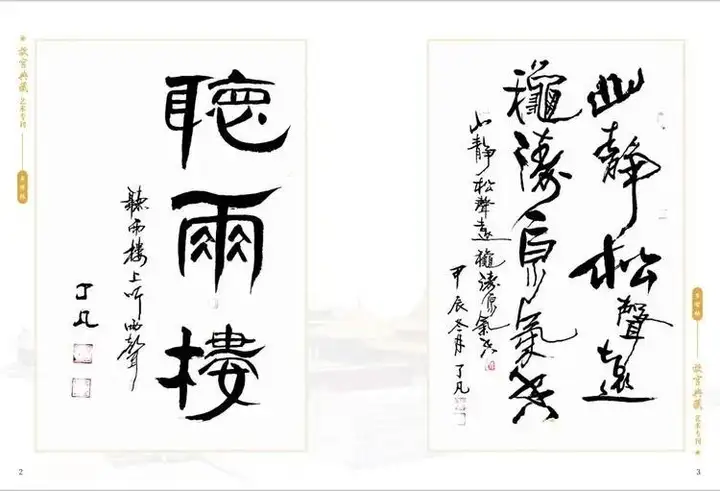 故宫典藏 艺术专刊
聽雨樓
聽雨樓上听雨聲
了凡
2
山靜松聲遠
穐清泉氣香
山靜松聲遠 穐清泉氣香
甲辰冬月 了凡
故宫典藏 艺术专刊
3